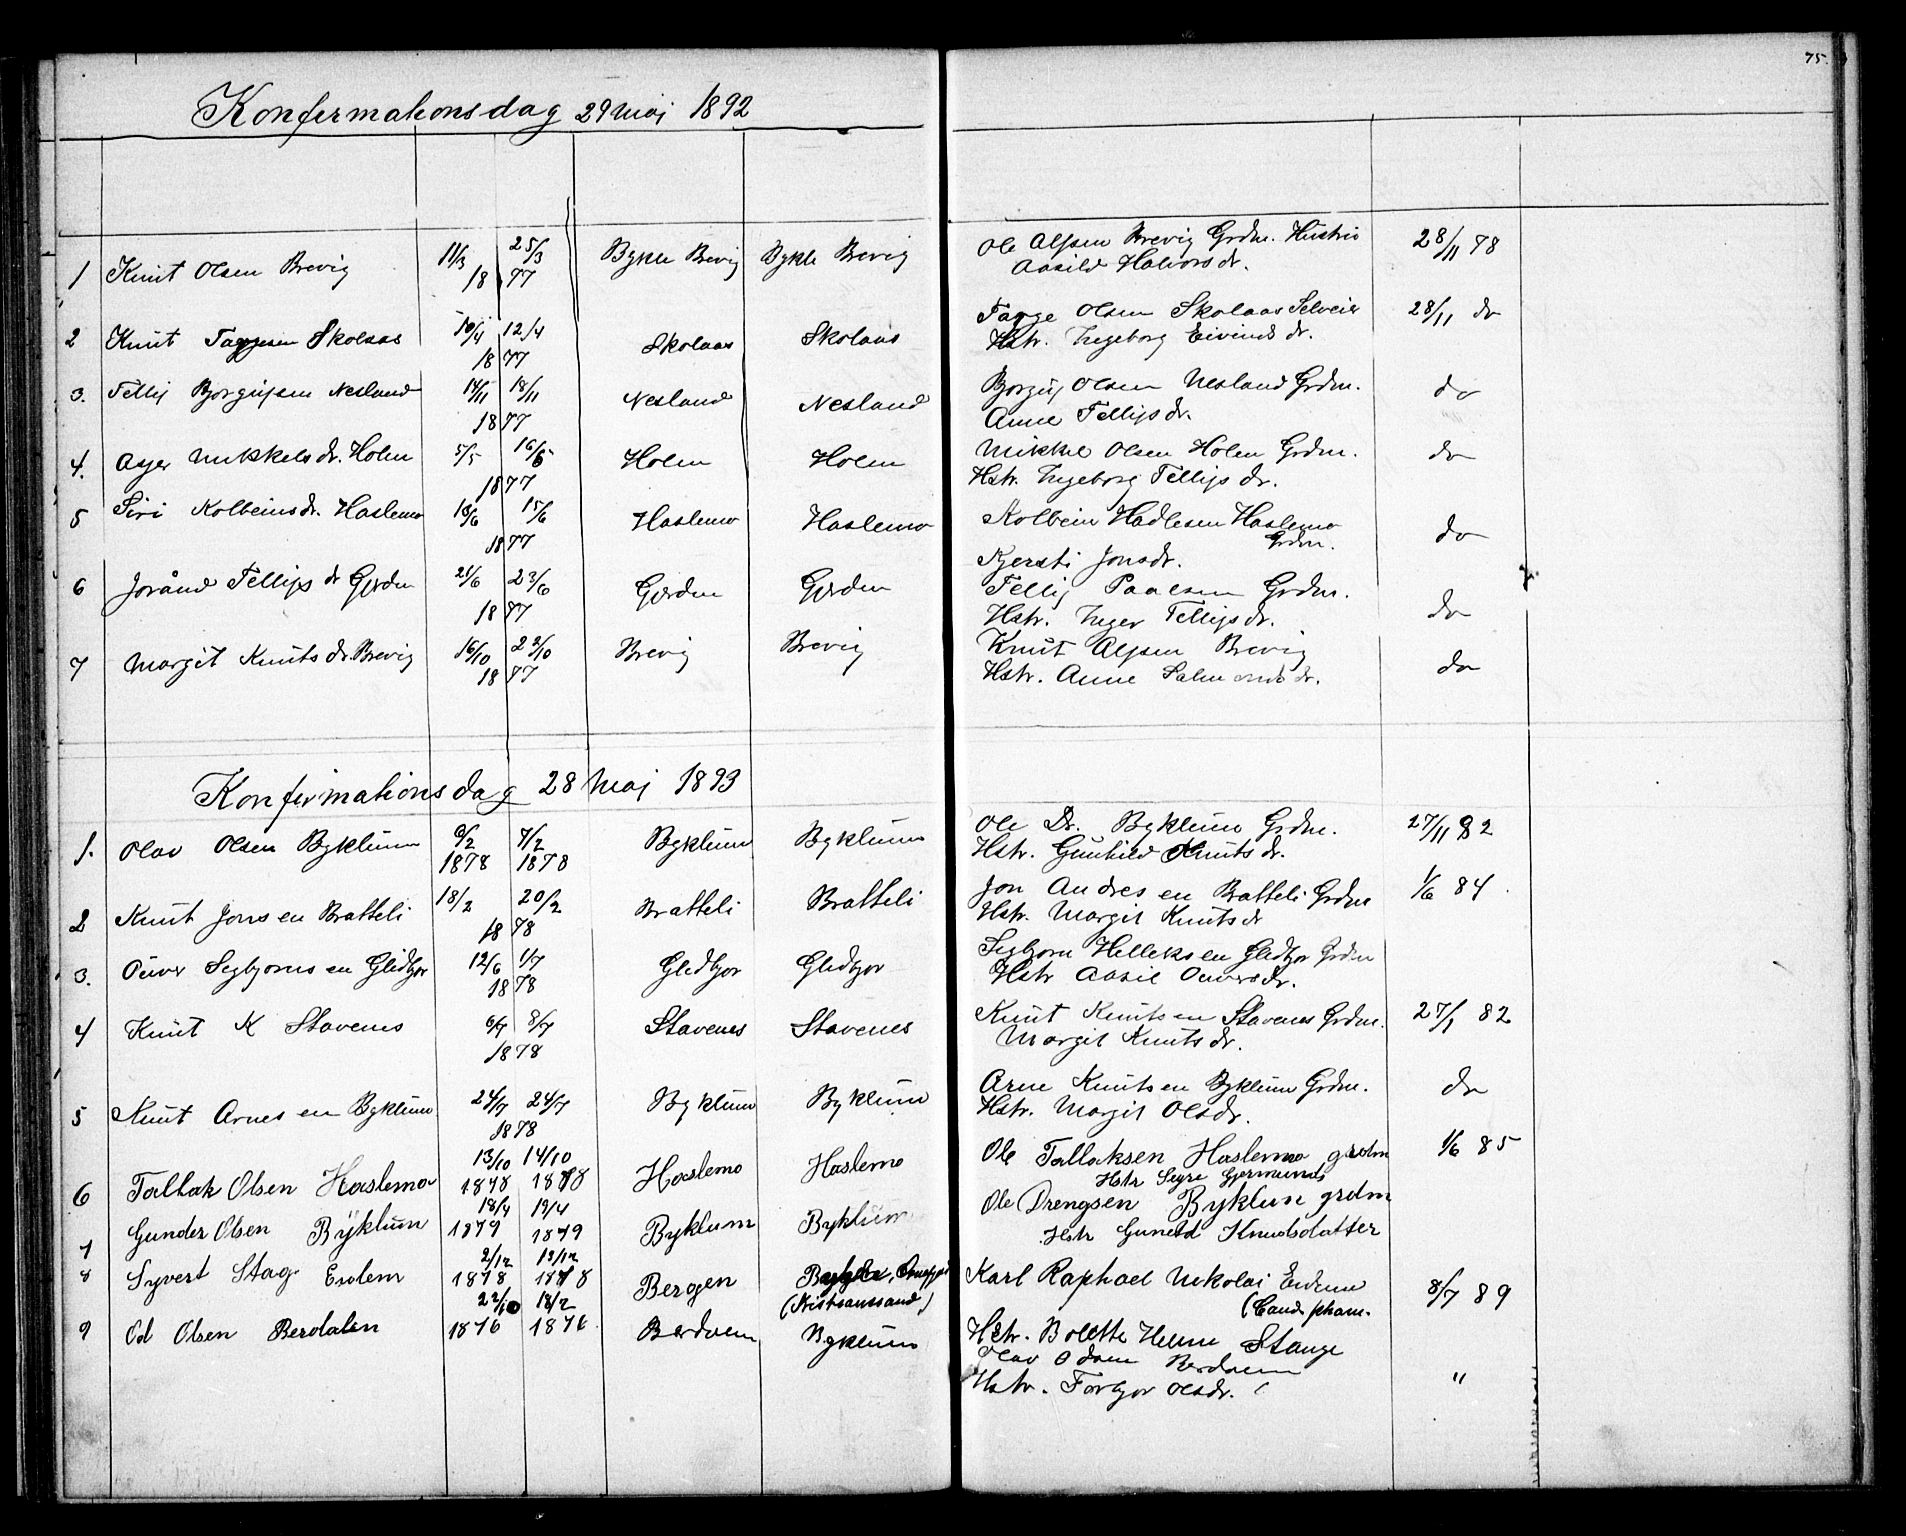 75.
Konfermationsdag 29 Maj 1892
1 Knut Olsen Brevig 11/3 25/3 Bykle Brevig Bykle Brevig Ole Alfsen Brevig Grdm. Hustru 28/11 78
18 77 Aasild Halvorsdr.
2 Knut Taggesen Skolaas 10/4 12/4 Skolaas Skolaas Tagge Olsen Skolaas Selveier 28/11 do
18 77 Hstr. Ingeborg Eivinds dr.
3. Tellej Bjorgufsen Nesland 14/11 18/11 Nesland Nesland Bjorguf Olsen Nesland Grdm. do
18 77 Anne Tellefsdr.
4. Mikkelsdr. Holen 5/5 16/5 Holen Holen Mikkel Olsen Holen Grdm. do
1877 Hstr. Ingeborg Tellefs dr.
5 Siri Kolbeinsdr. Haslemo 10/6 15/6 Haslemo Haslemo Kolbein Hadlesen Haslemo do
1877 Grdm.
Kjersti Jonsdr.
6 Jorånd Tellefs dr Gjerden 21/6 23/6 Gjerden Gjerden Tellef Paalsen Grdm. do
18 77 Hstr. Inger Tellefsdr.
7 Margit Knutsdr. Brevig 16/10 22/10 Brevig Brevig Knut Alfsen Brevig do
18 77 Hstr. Anne Salmondsdr.
Konfirmationsdag 28 Maj 1893
1. Olav Olsen Byklum 6/2 7/2 Byklum Byklum Ole Dr. Byklum Grdm. 27/11 82
1878 1878 Hstr. Gunhild Knuts dr.
2 Knut Jonsen Bratteli 18/2 20/2 Bratteli Bratteli Jon Andresen Bratteli Grdm 1/6 84
18 78 Hstr. Margit Knutsdr
3. Ouver Segbjornsen Gledtjor 12/6 1/7 Gledtjor Gledtjor Segbjorn Helleksen Gledtjor Grdm
18 78 Hstr Aasil Ouversdr.
4 Knut K Stavenes 6/7 8/7 Stavenes Stavenes Knut Knutsen Stavenes Grdm. 27/1 82
1878 Margit Knutsdr.
5 Knut Arnesen Byklum 24/7 24/7 Byklum Byklum Arne Knutsen Byklum Grdm. do
1878 Hstr. Margit Olsdr.
6 Tallak Olsen Haslemo 13/10 14/10 Haslemo Haslemo Ole Tallaksen Haslemo grdm 1/6 85
1878 1878 Hstr Segre Gjermunds
7 Gunder Olsen Byklum 18/4 19/4 Byklum Byklum Ole Drengsen Byklum grdm
1879 1879 Hstr Gunild Knudsdatter
8 Syvert Stag 2/12 12/12 Bergen Karl Raphael Nikolai 8/7 89
1878 1878 (Kristianssand) (Cand. pharm.
Hstr. Bolette Helene Stange
9 Od Olsen Berdalen 22/10 18/2 Berdalen Byklum Olav Odsen Berdalen "
1876 1876. Hstr. Torbjor Olsdr.